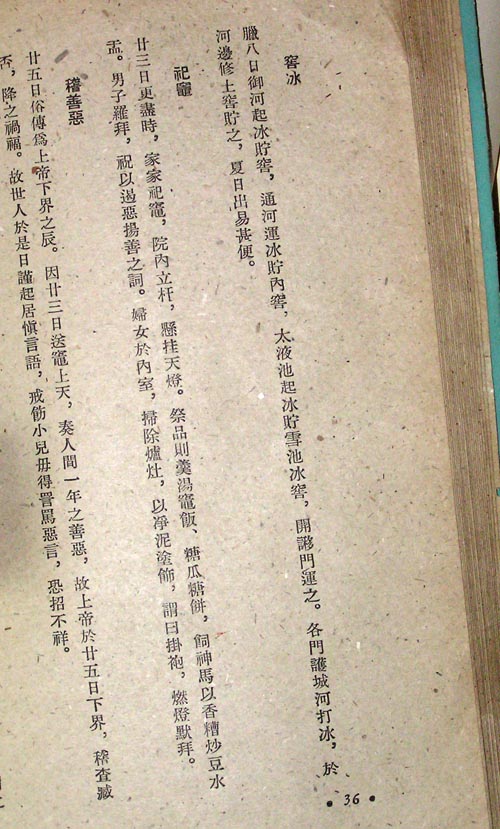 窖冰
臘八日御河起冰貯窖，通河運冰貯內窖，太液池起冰貯雪池冰窖，開謻門運之。各門護城河打冰，於
河邊修土窖貯之，夏日出易甚便。
祀竈
廿三日更盡時，家家祀竈，院內立杆，懸挂天燈。祭品則羹湯竈飯、糖瓜糖餅，飼神馬以香糟炒豆水
盂。男子羅拜，祝以遏惡揚善之詞。婦女於內室，掃除爐灶，以净泥塗飾，謂曰掛袍，燃燈默拜。
稽善惡
廿五日俗傳爲上帝下界之辰。因廿三日送竈上天，奏人間一年之善惡，故上帝於廿五日下界，稽查臧
否，降之禍福。故世人於是日謹起居慎言語，戒飭小兒毋得詈罵惡言，恐招不祥。
• 36 •